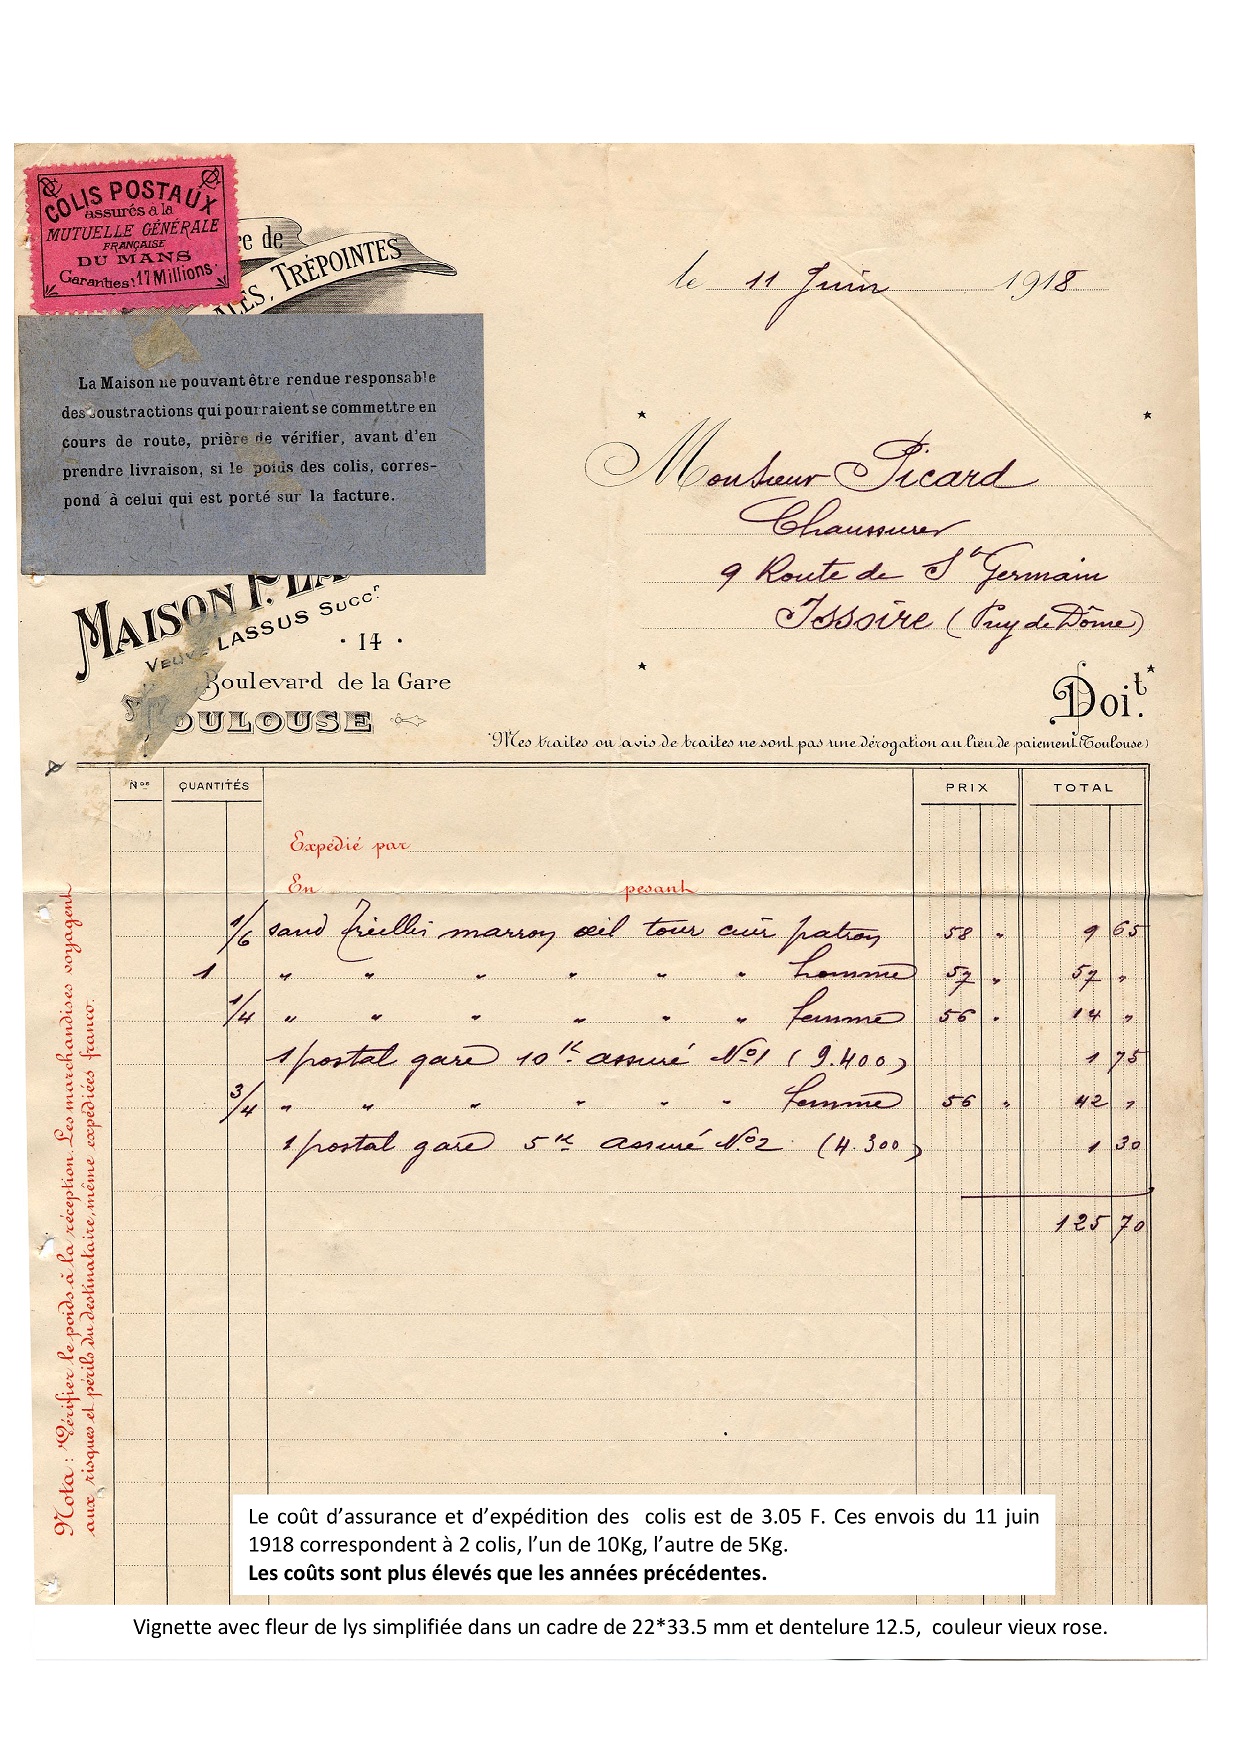 COLIS POSTAUX
assurés à la
MUTUELLE GÉNÉRALE
FRANÇAISE
DU MANS
Garanties: 17 Millions.
re de
ALES, TRÉPOINTES
le 11 Juin 1918
La Maison ne pouvant être rendue responsable
des soustractions qui pourraient se commettre en
cours de route, prière de vérifier, avant d'en
prendre livraison, si le poids des colis, corres-
pond à celui qui est porté sur la facture.
Monsieur Picard
Chaussures
9 Route de St Germain
Issoire (Puy de Dôme)
MAISON F. LA
VEUVE LASSUS SUCCr
· 14 ·
Boulevard de la Gare
TOULOUSE
Doit.
Mes traites ou avis de traites ne sont pas une dérogation au lieu de paiement (Toulouse)
Nos QUANTITÉS PRIX TOTAL
Expédié par
En pesant
1/6 sand treillis marron œil tour cuir patron 58 " 9 65
1 " " " " " " homme 57 " 57 "
1/4 " " " " " " femme 56 " 14 "
1 postal gare 10 k. assuré No 1 (9.400) 1 75
3/4 " " " " " " femme 56 " 42 "
1 postal gare 5 k assuré No 2 (4.300) 1 30
125 70
Nota: Vérifier le poids à la réception. Les marchandises voyagent
aux risques et périls du destinataire, même expédiées franco.
Le coût d’assurance et d’expédition des colis est de 3.05 F. Ces envois du 11 juin
1918 correspondent à 2 colis, l’un de 10Kg, l’autre de 5Kg.
Les coûts sont plus élevés que les années précédentes.
Vignette avec fleur de lys simplifiée dans un cadre de 22*33.5 mm et dentelure 12.5, couleur vieux rose.